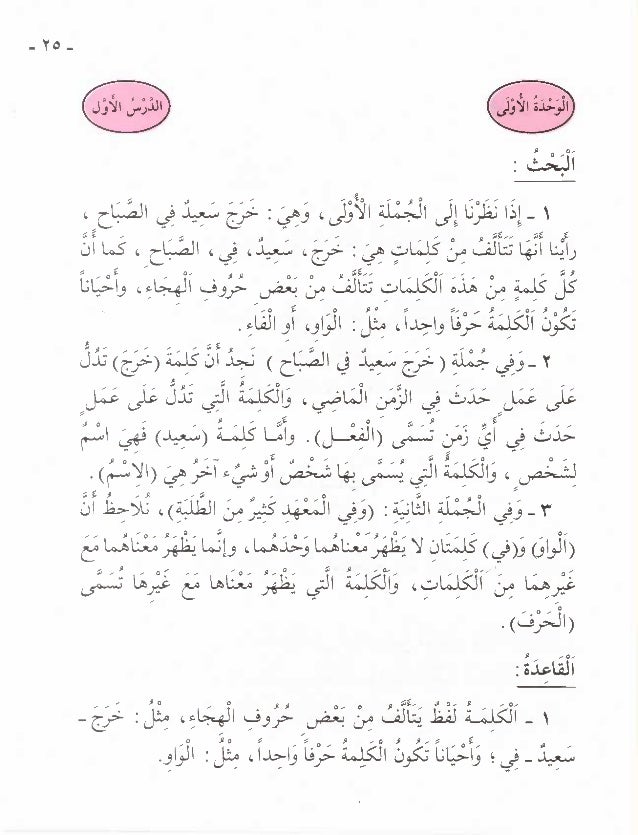 - ٢٥ -
الْوَحْدَةُ الْأُوْلَى
الدَّرْسُ الْأَوَّلُ
اَلْبَحْثُ :
١ - إِذَا نَظَرْنَا إِلَى الْجُمْلَةِ الْأُوْلَى ، وَهِيَ : خَرَجَ سَعِيدٌ فِي الصَّبَاحِ ،
رأَيْنا أَنَّهَا تَتَأَلَّفُ مِنْ كَلِمَاتٍ هِيَ : خَرَجَ، سَعِيدٌ، فِي ، الصَّبَاحِ ، كَمَا أَنَّ
كُلَّ كَلِمَةٍ مِنْ هَذِهِ الْكَلِمَاتِ تَتَأَلَّفُ مِنْ بَعْضِ حُرُوفِ الْهِجَاءِ، وأَحْيَاناً
تَكُوْنُ الْكَلِمَةُ حَرْفاً واحِداً، مِثْلُ : الْوَاوِ، أَو الْفَاءِ.
٢ - وَفِي جُمْلَةِ ( خَرَجَ سَعِيدٌ فِي الصَّبَاحِ ) نَجِدُ أَنَّ كَلِمَةَ (خَرَجَ) تَدُلُّ
عَلَى عَمَلٍ حَدَثَ فِي الزَّمَنِ الْمَاضِي، وَالْكَلِمَةُ الَّتِي تَدُلُّ عَلَى عَمَلٍ
حَدَثَ فِي أَيِّ زَمَنٍ تُسَمَّى (الْفِعْلَ). وأَمَّا كَلِمَةُ (سَعِيد) فَهِيَ اسْمٌ
لِشَخْصٍ ، وَالْكَلِمَةُ الَّتِي يُسَمَّى بِهَا شَخْصٌ أَوْ شَيْءٌ آخَرُ هِيَ (الاسْمُ).
٣ - وَفِي الْجُمْلَةِ الثَّانِيَةِ : (وَفِي الْمَعْهَدِ كَثِيرٌ مِنَ الطَّلَبَةِ)، نُلَاحِظُ أَنَّ
(الْوَاوَ) وَ(فِي) كَلِمَتَانِ لَا يَظْهَرُ مَعْنَاهُمَا وَحْدَهُمَا، وإِنَّمَا يَظْهَرُ مَعْنَاهُمَا مَعَ
غَيْرِهِمَا مِنَ الْكَلِمَاتِ، وَالْكَلِمَةُ الَّتِي يَظْهَرُ مَعْنَاهَا مَعَ غَيْرِهَا تُسَمَّى
(الْحَرْفَ) .
اَلْقَاعِدَةُ :
١ - اَلْكَلِمَةُ لَفْظٌ يَتَأَلَّفُ مِنْ بَعْضِ حُرُوفِ الْهِجَاءِ، مِثْلُ : خَرَجَ -
سَعِيدٌ - فِي ؛ وَأَحْيَاناً تَكُونُ الْكَلِمَةُ حَرْفاً وَاحِداً، مِثْلُ : الْوَاوِ.